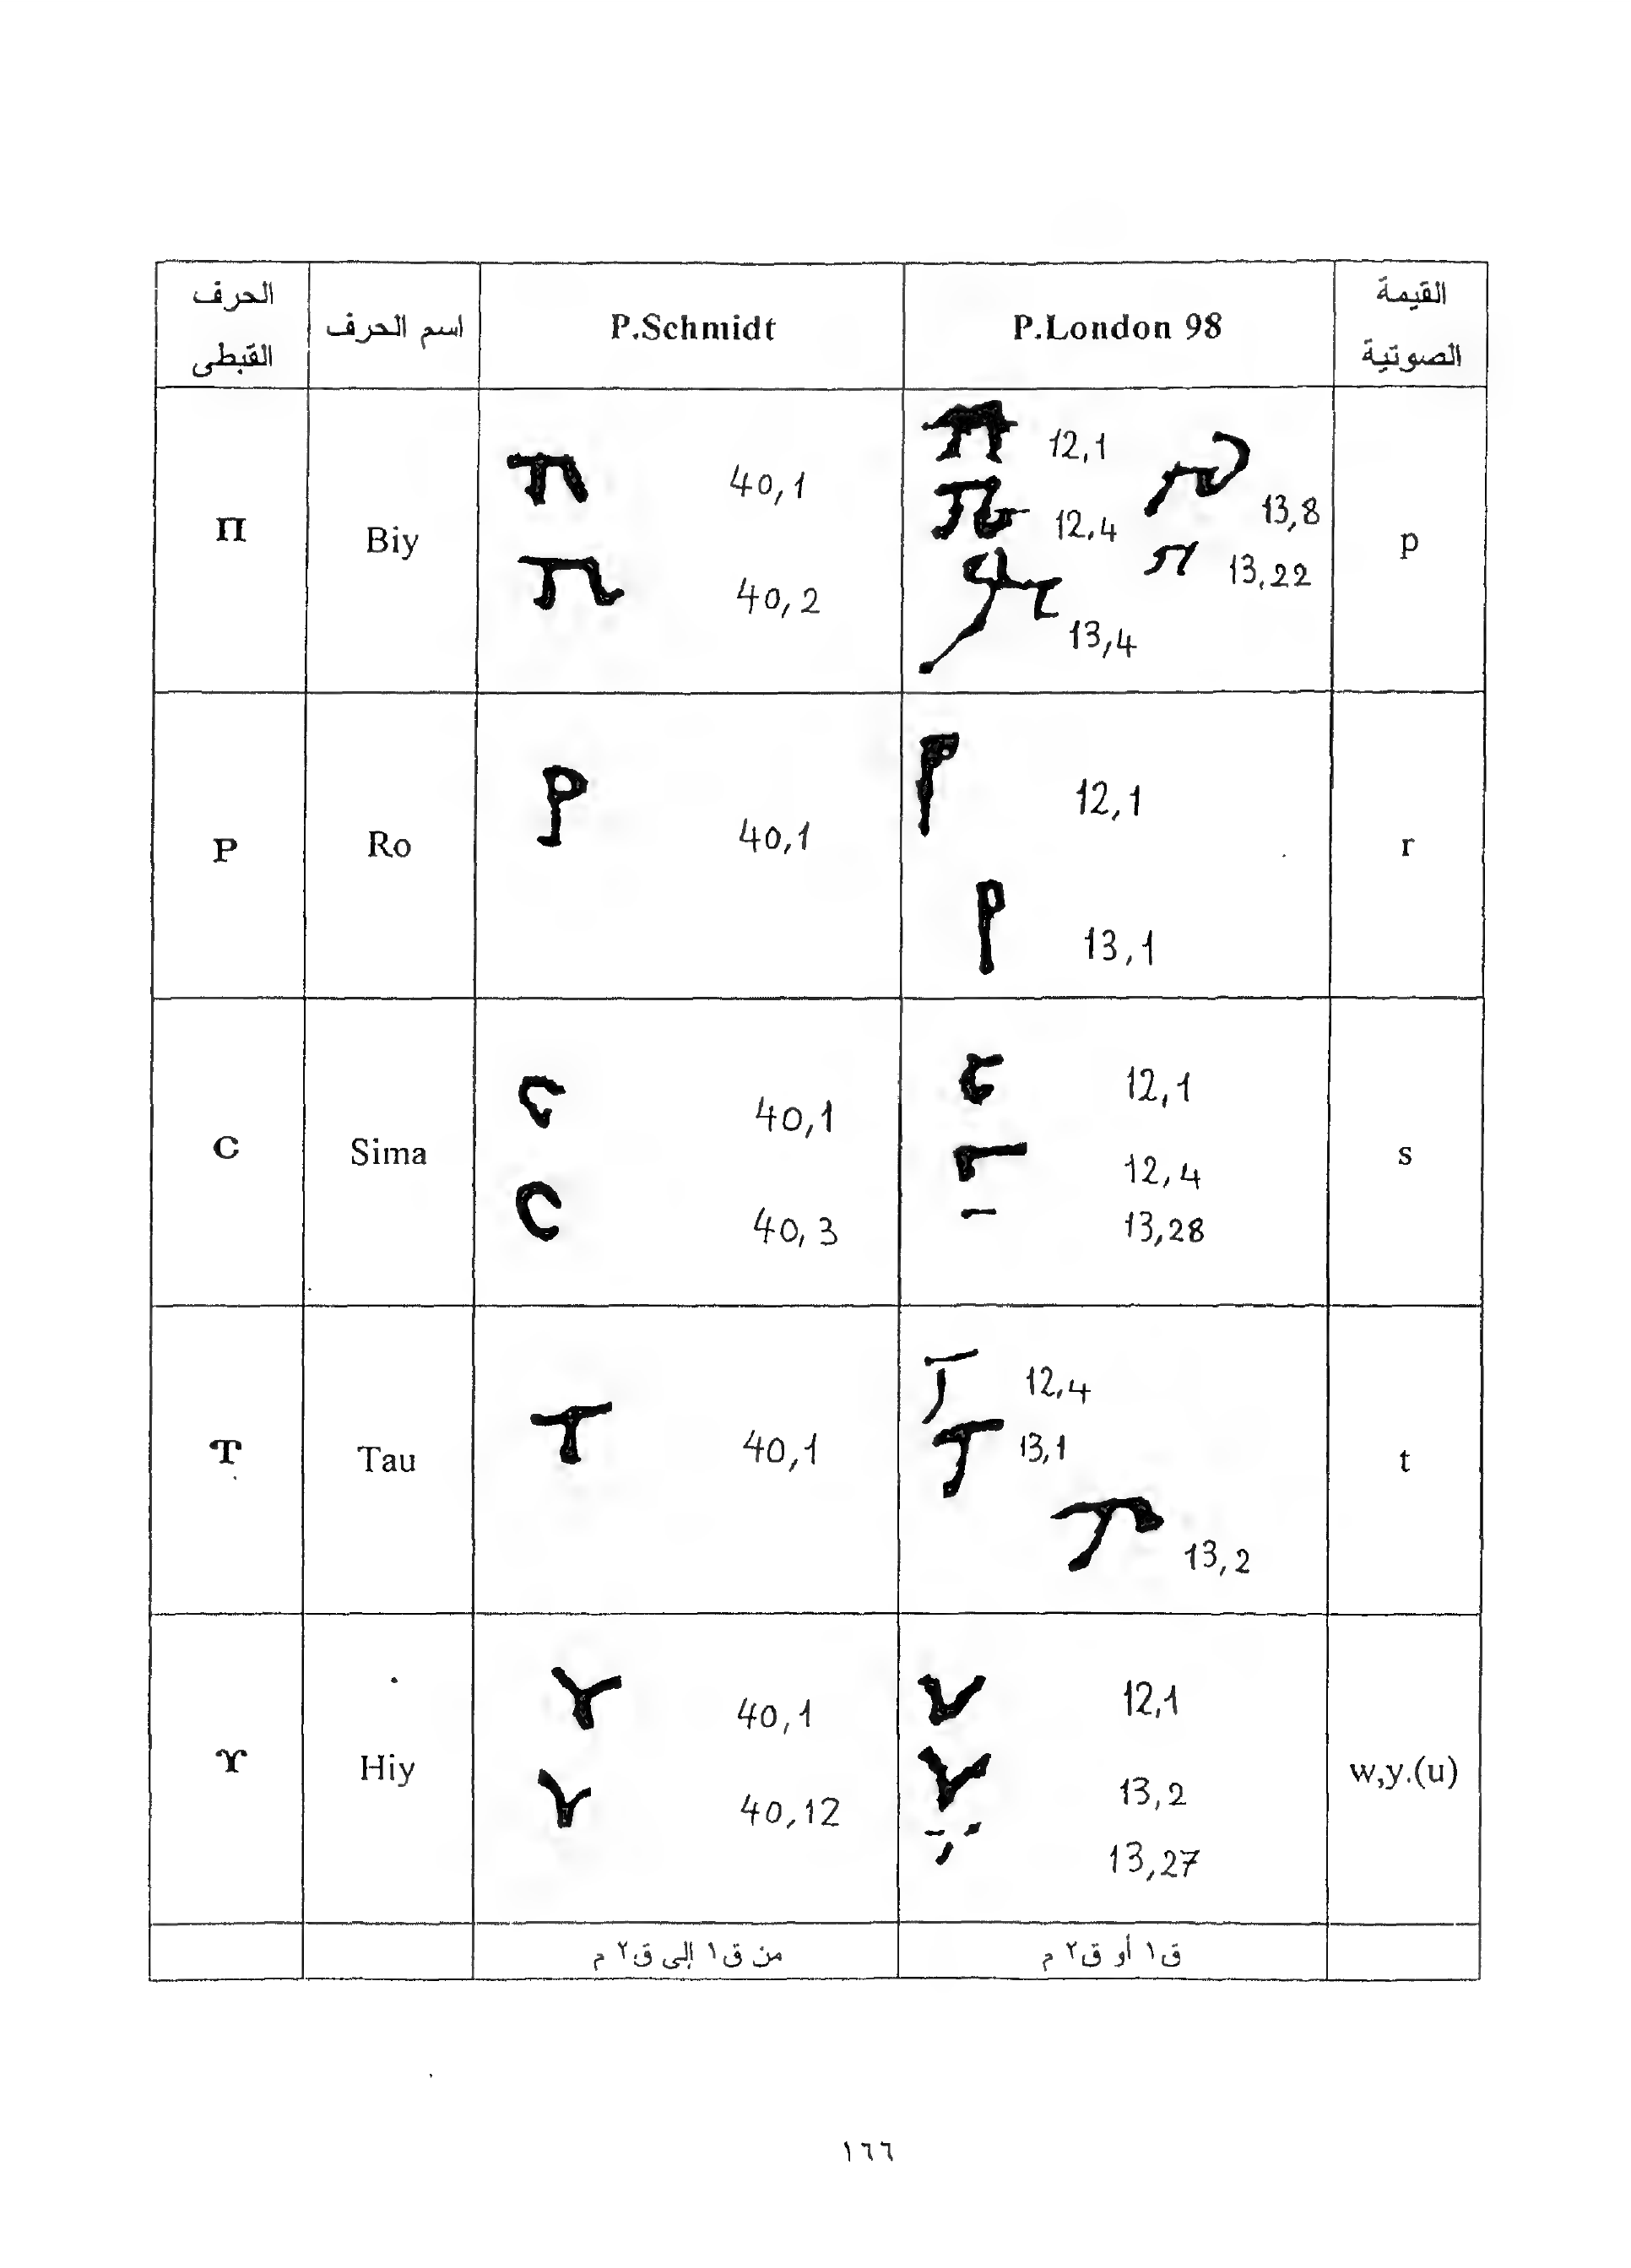 الحرف القبطى
اسم الحرف
P.Schmidt
P.London 98
القيمة الصوتية
Π
Biy
40,1
40,2
12,1
12,4
13,4
13,8
13,22
p
Ρ
Ro
40,1
12,1
13,1
r
С
Sima
40,1
40,3
12,1
12,4
13,28
s
Τ
Tau
40,1
12,4
13,1
13,2
t
ϒ
Hiy
40,1
40,12
12,1
13,2
13,27
w,y.(u)
من ق١ إلى ق٢ م
ق١ أو ق٢ م
١٦٦